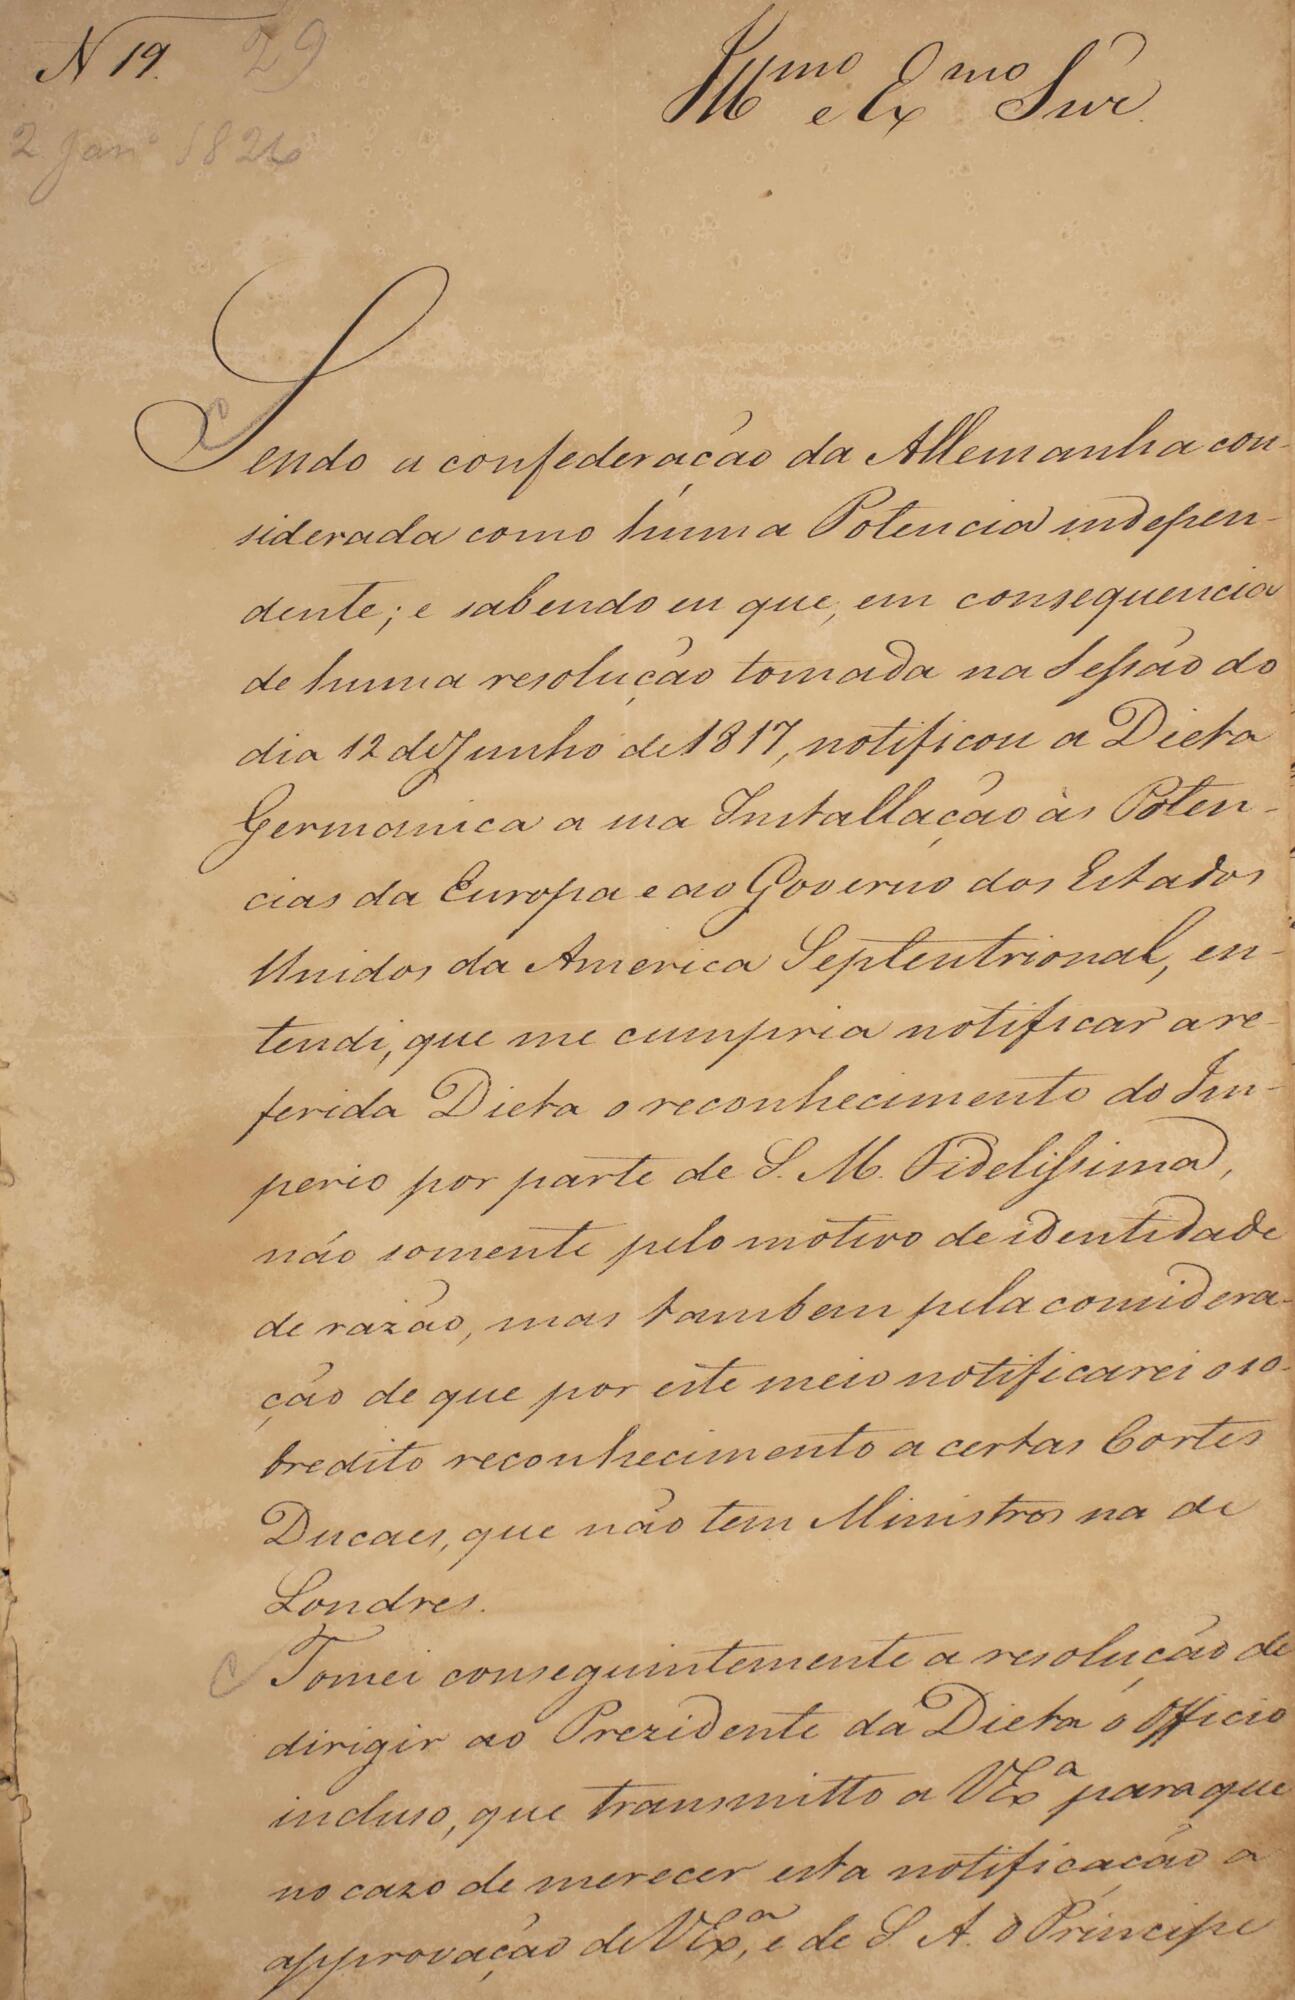 N 19. 29
2 Jan.º 1826
Illmo e Exmo Snr.
Sendo a confederação da Allemanha con-
siderada como huma Potencia indepen-
dente; e sabendo eu que, em consequencia
de huma resolução tomada na Sessão do
dia 12 de Junho de 1817, notificou a Dieta
Germanica a sua Installação às Poten-
cias da Europa e ao Governo dos Estados
Unidos da America Septentrional, en-
tendi, que me cumpria notificar a re-
ferida Dieta o reconhecimento do Im-
perio por parte de S. M. Fidelissima,
não somente pelo motivo de identidade
de razão, mas tambem pela considera-
ção de que por este meio notificarei o so-
bredito reconhecimento a certas Cortes
Ducaes, que não tem Ministros na de
Londres.
Tomei conseguintemente a resolução de
dirigir ao Prezidente da Dieta o Officio
incluso, que transmitto a VExª para que
no cazo de merecer esta notificação a
approvação de VExª, e de S. A. o Principe